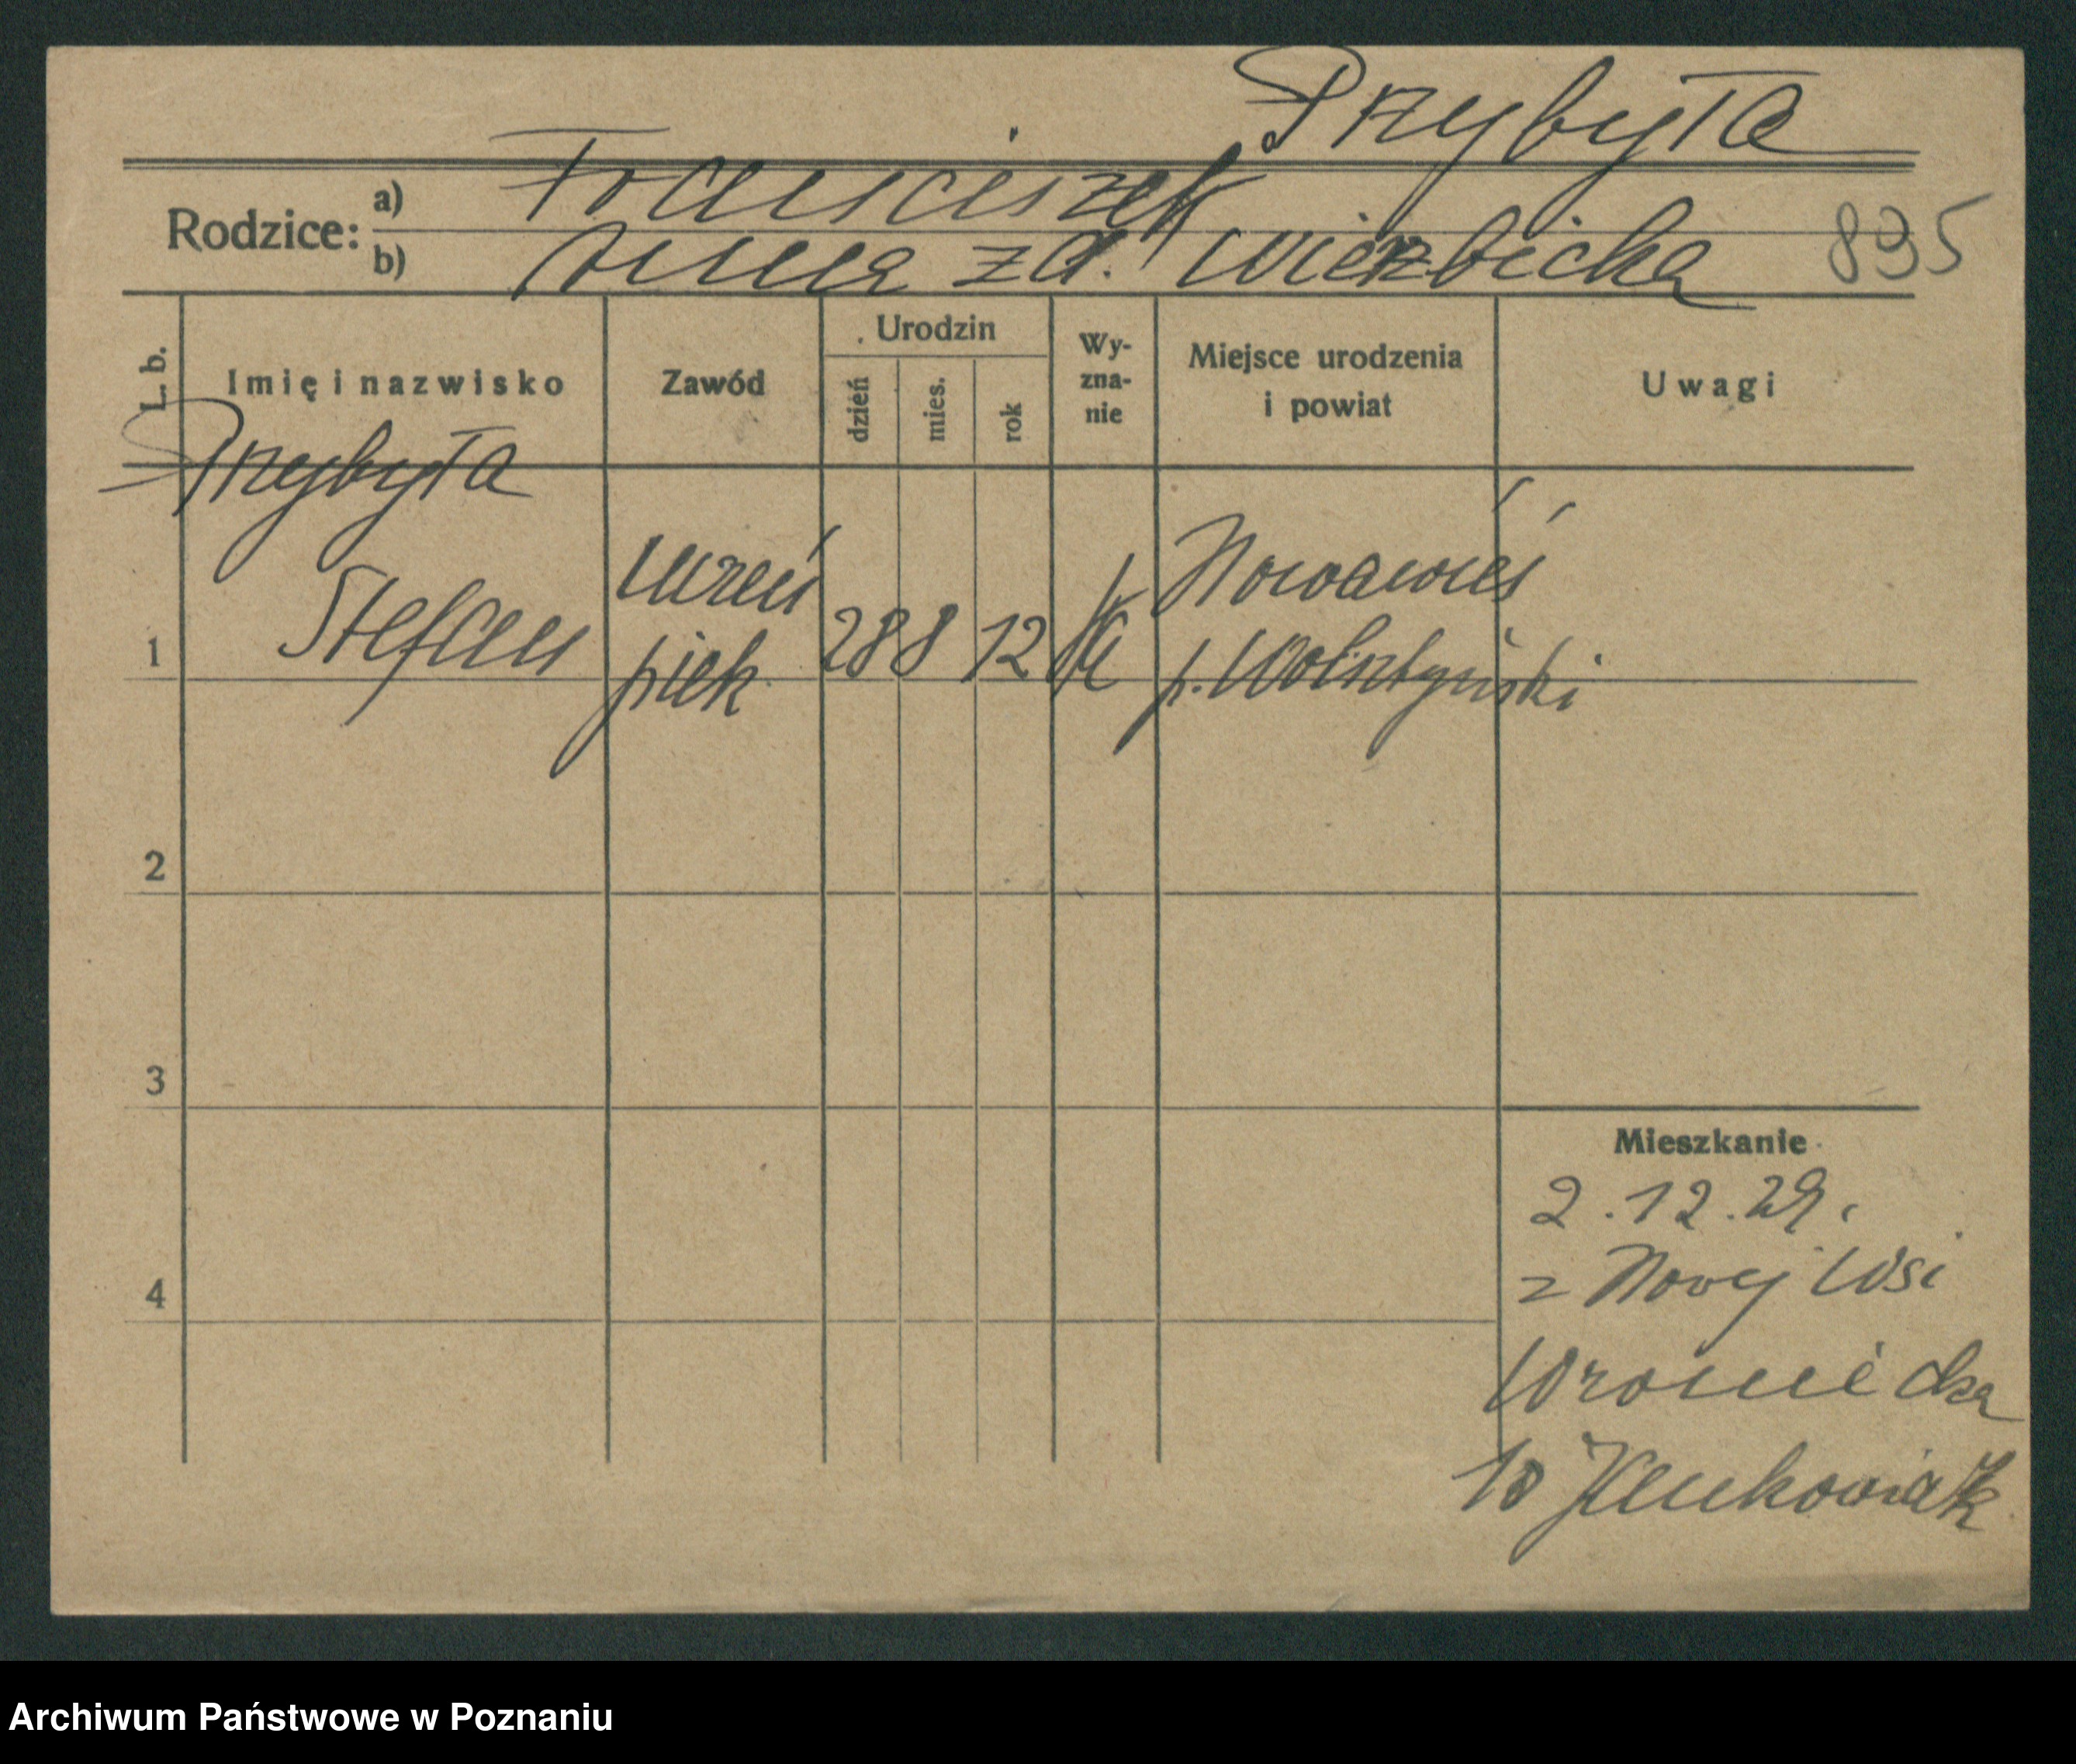 Przybyła
Rodzice: a) Franciszek
b) Anna zd. Wierzbicka 895
L. b. Imię i nazwisko Zawód Urodzin dzień mies. rok Wyzna-nie Miejsce urodzenia i powiat Uwagi
Przybyła
uczeń Nowawieś
1 Stefan piek. 28 8 12 K p. Wolsztyński
2
3
Mieszkanie
2.12.29.
z Nowej Wsi
4
Wroniecka
10
Archiwum Państwowe w Poznaniu